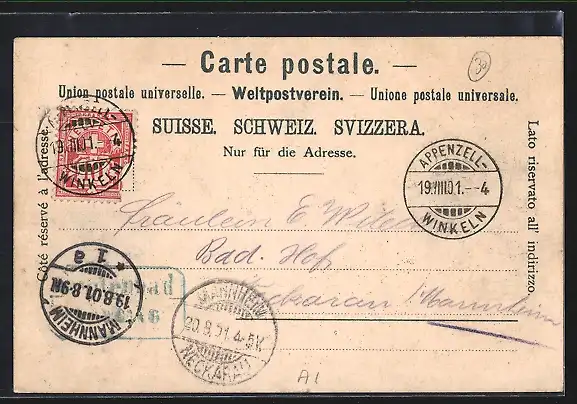 — Carte postale. —
Union postale universelle. — Weltpostverein. — Unione postale universale.
SUISSE. SCHWEIZ. SVIZZERA.
Nur für die Adresse.
Côté réservé à l'adresse.
Lato riservato all' indirizzo
39
WINKELN
19.VIII.01.-4
APPENZELL-
19.VIII.01.-4
WINKELN
Fräulein E
Bad. Hof
Neckarau b/Mannheim
* 1 a
19.8.01.8-9N
MANNHEIM
MANNHEIM
20.8.01.4-5V.
NECKARAU
A1